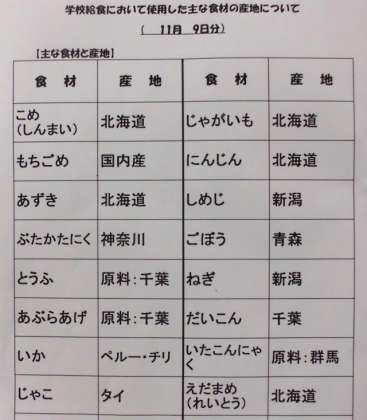 学校給食において使用した主な食材の産地について
( 11月 9日分)
【主な食材と産地】
食 材 産 地 食 材 産 地
こめ
(しんまい) 北海道 じゃがいも 北海道
もちごめ 国内産 にんじん 北海道
あずき 北海道 しめじ 新潟
ぶたかたにく 神奈川 ごぼう 青森
とうふ 原料:千葉 ねぎ 新潟
あぶらあげ 原料:千葉 だいこん 千葉
いか ペルー・チリ いたこんにゃ
く 原料:群馬
じゃこ タイ えだまめ
(れいとう) 北海道